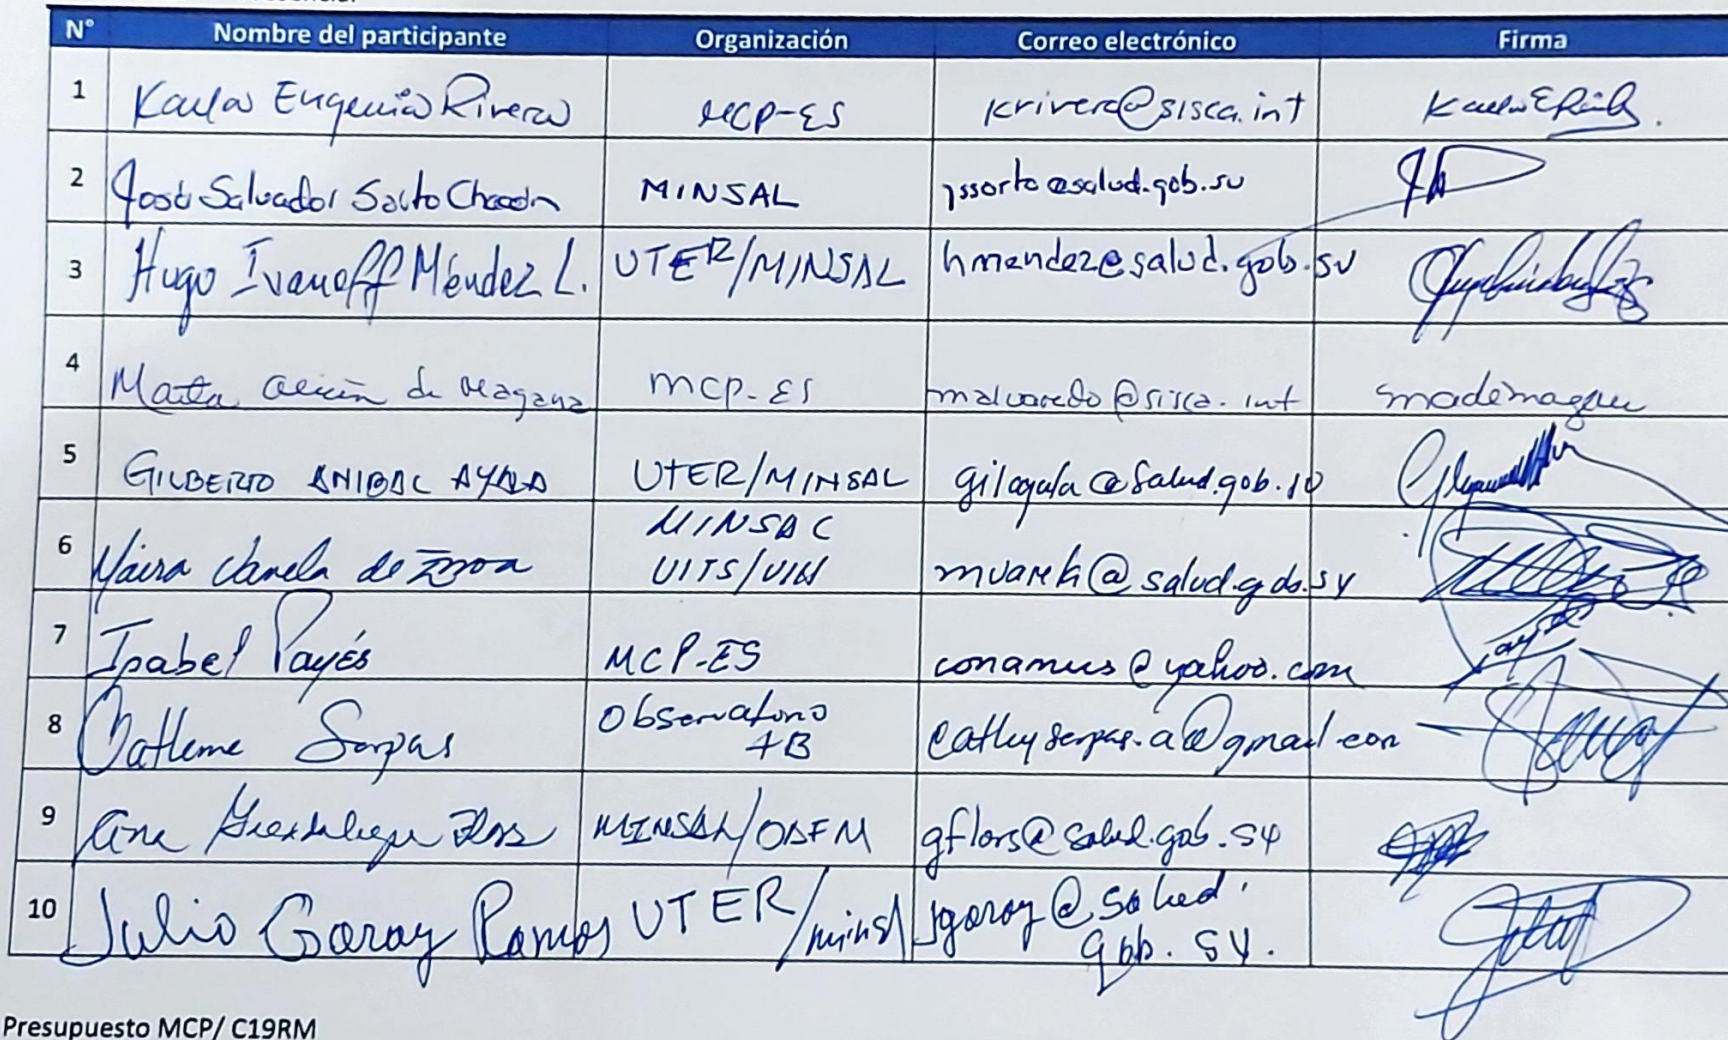 N° Nombre del participante Organización Correo electrónico Firma
1 Karla Eugenia Rivera MCP-ES krivera@sisca.int
2 José Salvador Sorto Chacón MINSAL jssorto@salud.gob.sv
3 Hugo Ivanoff Méndez L. UTER/MINSAL hmendez@salud.gob.sv
4 Marta Alicia de Magaña MCP-ES malvarado@sisca.int
5 GILBERTO ANIBAL AYALA UTER/MINSAL gilayala@salud.gob.sv
MINSAL
6 Maira de UITS/VIH @salud.gob.sv
7 Isabel Payés MCP-ES conamus@yahoo.com
Observatorio
8 Serpas TB cathyserpas.a@gmail.com
9 Ana Guadalupe Flores MINSAL/ gflores@salud.gob.sv
10 Julio Garay Ramos UTER/minsal jgaray@salud.
gob.sv.
Presupuesto MCP/ C19RM